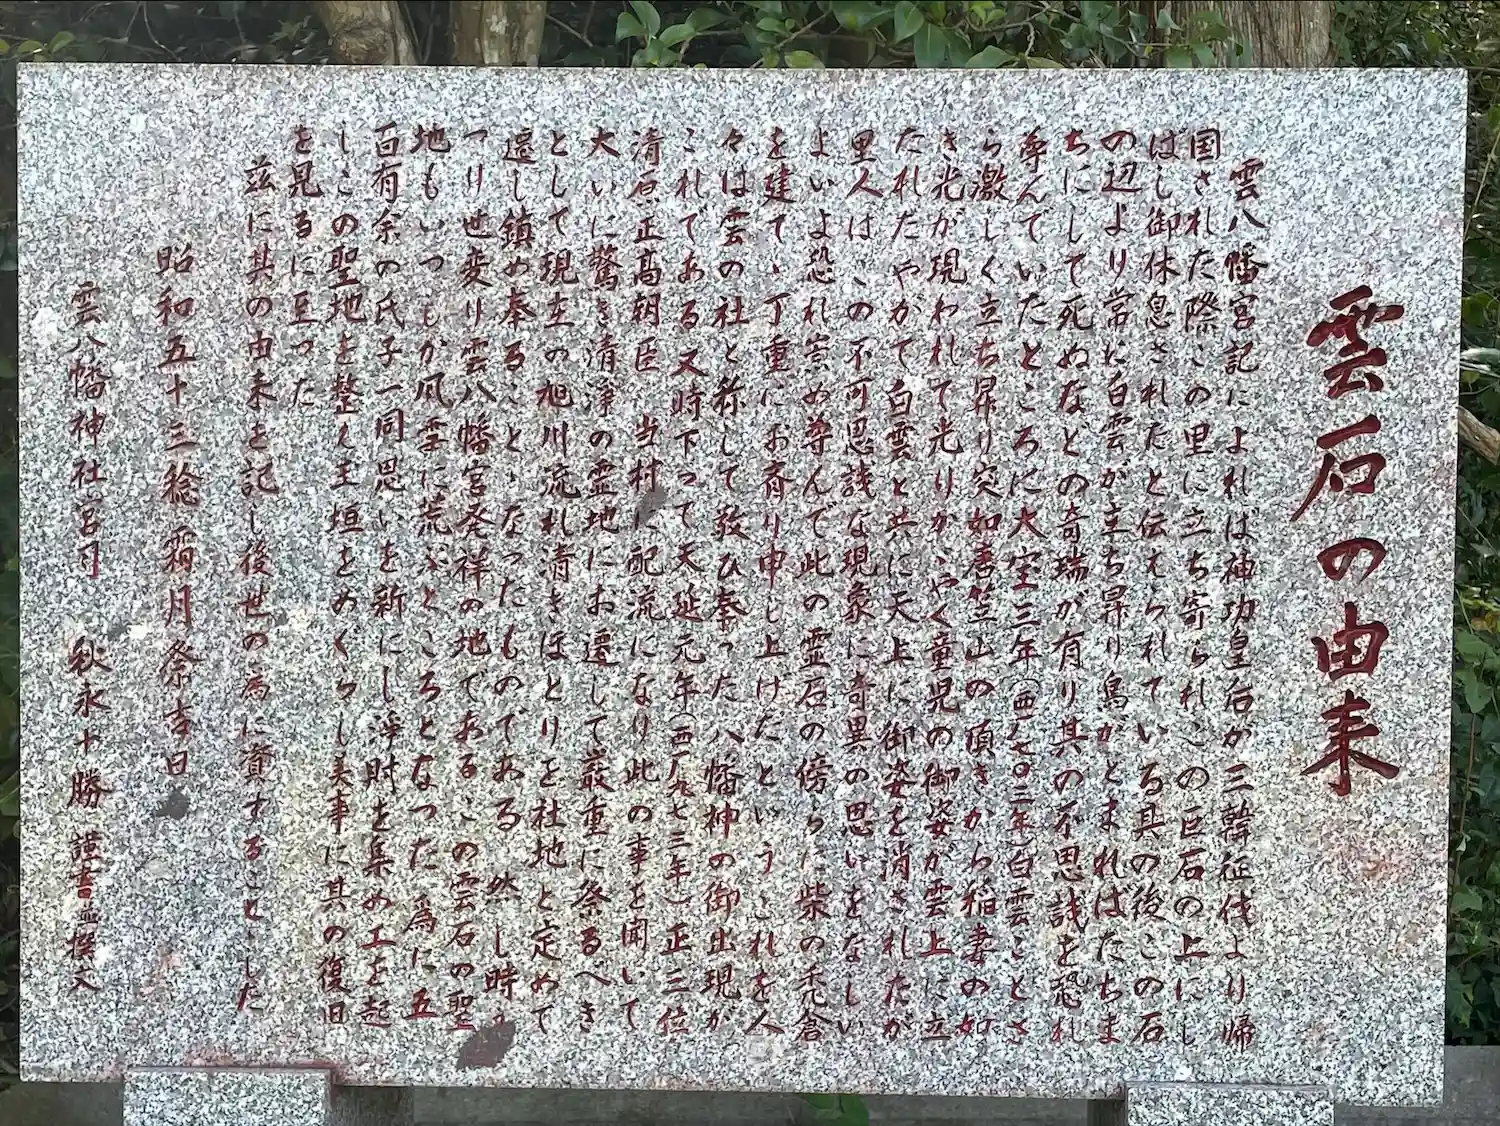 雲石の由来
雲八幡宮記によれば神功皇后が三韓征伐より帰
国された際この里に立ち寄られこの巨石の上にし
ばし御休息されたと伝えられている其の後この石
の辺より常に白雲が立ち昇り鳥がとまればたちま
ちにして死ぬなどの奇瑞が有り其の不思議を恐れ
尊んでいたところに大空三年(西七〇三年)白雲ことさ
ら激しく立ち昇り突如 笠山の頂きから稲妻の如
き光が現われて光りかゞやく童児の御姿が雲上に立
たれたやがて白雲と共に天上に御姿を消されたが
里人はこの不可思議な現象に奇異の思いをなしい
よいよ恐れ崇め尊んで此の霊石の傍らに柴の禿倉
を建て、丁重にお斉り申し上げたというこれを人
々は雲の社と称して敬ひ奉った八幡神の御出現が
これである又時下って天延元年(西九七三年)正三位
清原正高朝臣 当村に配流になり此の事を聞いて
大いに驚き清浄の霊地にお遷して厳重に祭るべき
として現在の旭川流れ清きほとりを社地と定めて
遷し鎮め奉ること、なったものである 然し時
つり世変り雲八幡宮発祥の地であるこの雲石の聖
地もいつしか風雪に荒ぶところとなつた為に五
百有余の氏子一同思いを新にし浄財を集め工を起
しこの聖地を整え玉垣をめぐらし美事に其の復旧
を見るに至った
茲に其の由来を記し後世の為に資することゝした
昭和五十三稔 霜月祭吉日
雲八幡神社宮司 秋永十勝 謹書並撰文